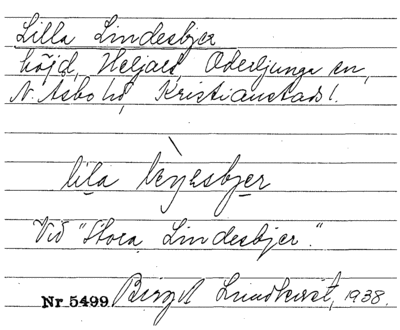 Lilla Lindesbjer
höjd, Heljaröd, Oderljunga sn,
N. Åsbo hd, Kristianstads l.
lila
Vid "Stora Lindesbjer".
Nr. 5499 Birgit Lundkvist, 1938.